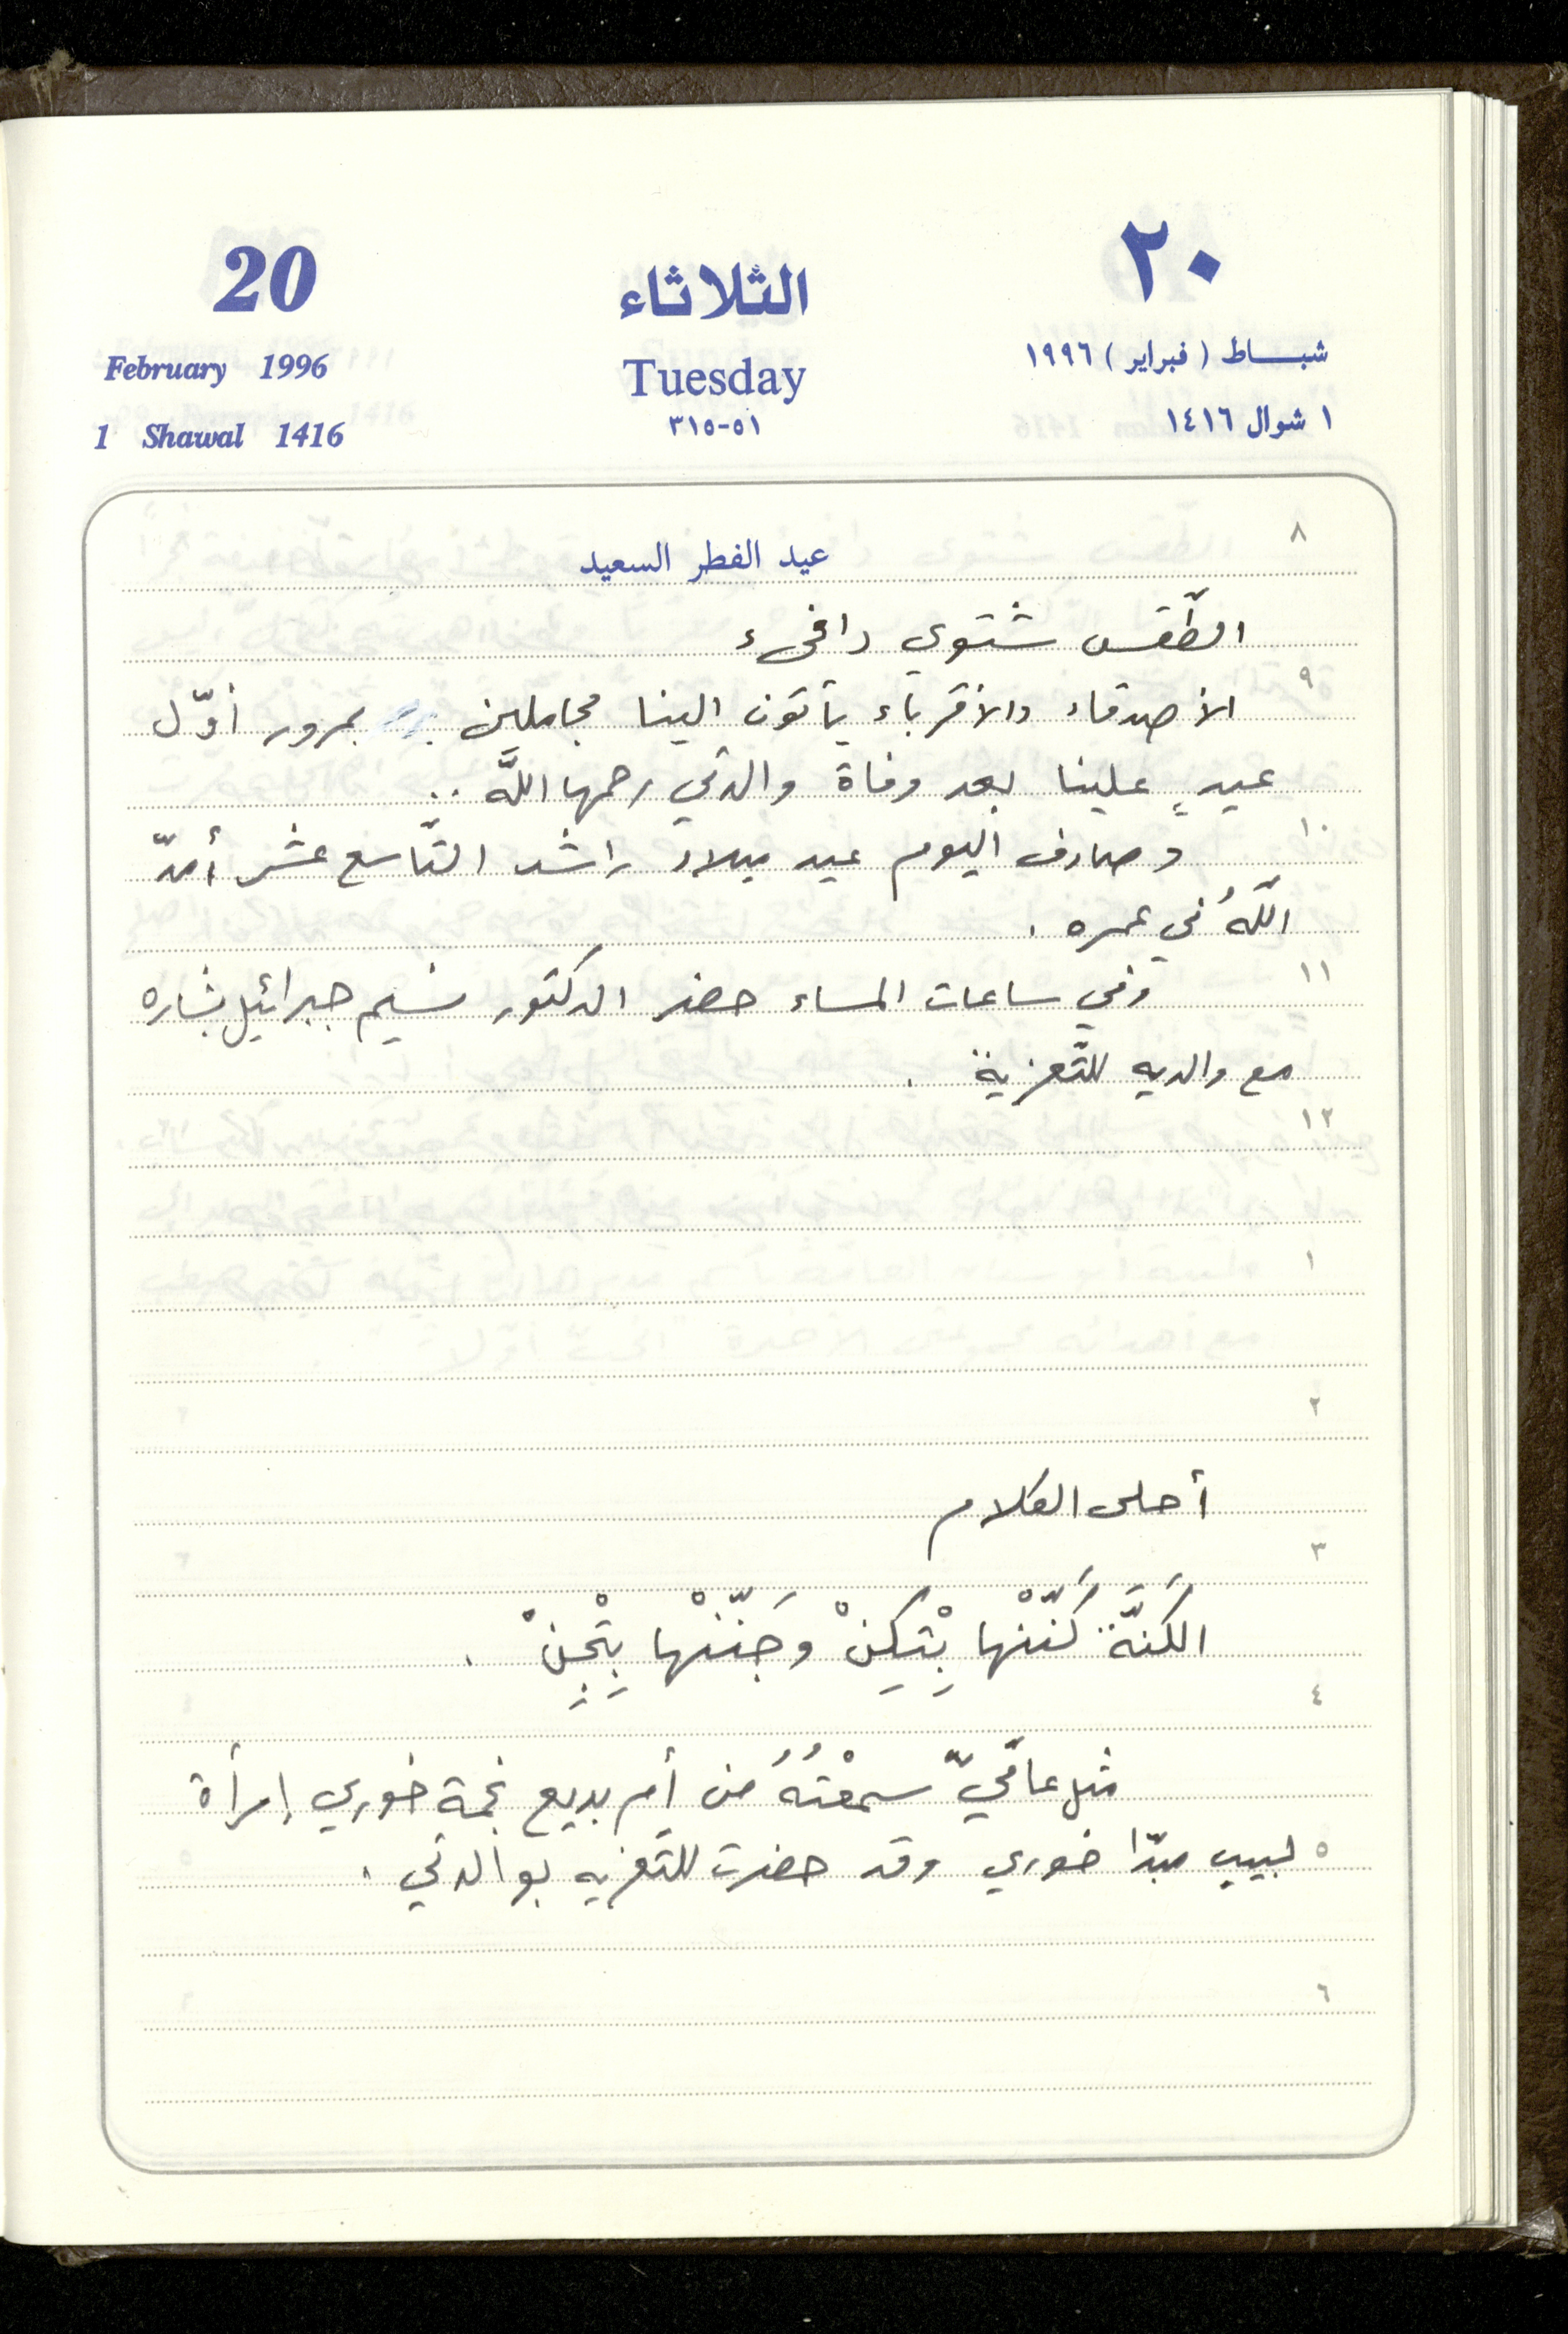 20
الثلاثاء
٢٠
February 1996
Tuesday
شباط (فبراير) ١٩٩٦
1 Shawal 1416
٥١-٣١٥
١ شوال ١٤١٦
٨
عيد الفطر السعيد
الطّقس شتوي دافىء
٩
الأصدقاء والأقرباء يأتون الينا مجاملين بمرور أوّل
عيدٍ علينا بعد وفاة والدتي رحمها اللّه ..
١٠
وصادف اليوم عيد ميلاد راشد التّاسع عشر أمدّ
اللّهُ في عمره .
١١
وفي ساعات المساء حضر الدكتور نسيم جبرائيل بشاره
مع والديه للتّعزية .
١٢
١
٢
أحلى الكلام
٣
الكَنَّة كَنّنْها بْتِكِنْ وجَنّنْها بِتْجِنْ .
٤
مثل عامّيّ سمعْتُهُ من أم بديع نجمة خوري إمرأة
٥
لبيب مبدّا خوري وقد حضرت للتّعزيه بوالدتي .
٦